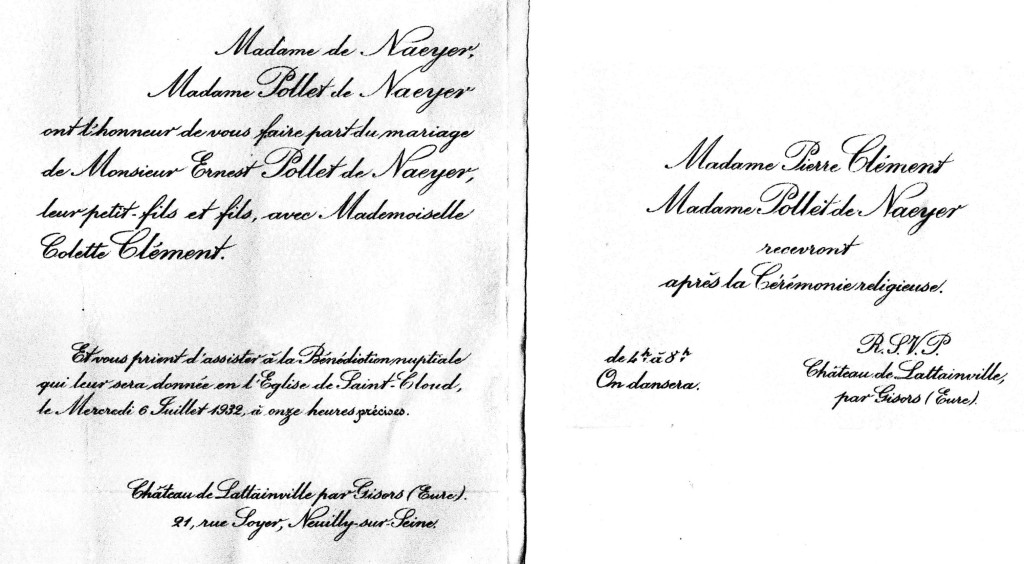 Madame de Naeyer,
Madame Pollet de Naeyer
ont l'honneur de vous faire part du mariage
de Monsieur Ernest Pollet de Naeyer,
leur petit-fils et fils, avec Mademoiselle
Colette Clément.
Et vous prient d'assister à la Bénédiction nuptiale
qui leur sera donnée en l'Eglise de Saint-Cloud,
le Mercredi 6 Juillet 1932, à onze heures précises.
Château de Lattainville par Gisors (Eure).
21, rue Soyer, Neuilly-sur-Seine.
Madame Pierre Clément
Madame Pollet de Naeyer
recevront
après la Cérémonie religieuse.
de 4h à 8h
On dansera.
R.S.V.P.
Château de Lattainville,
par Gisors (Eure).